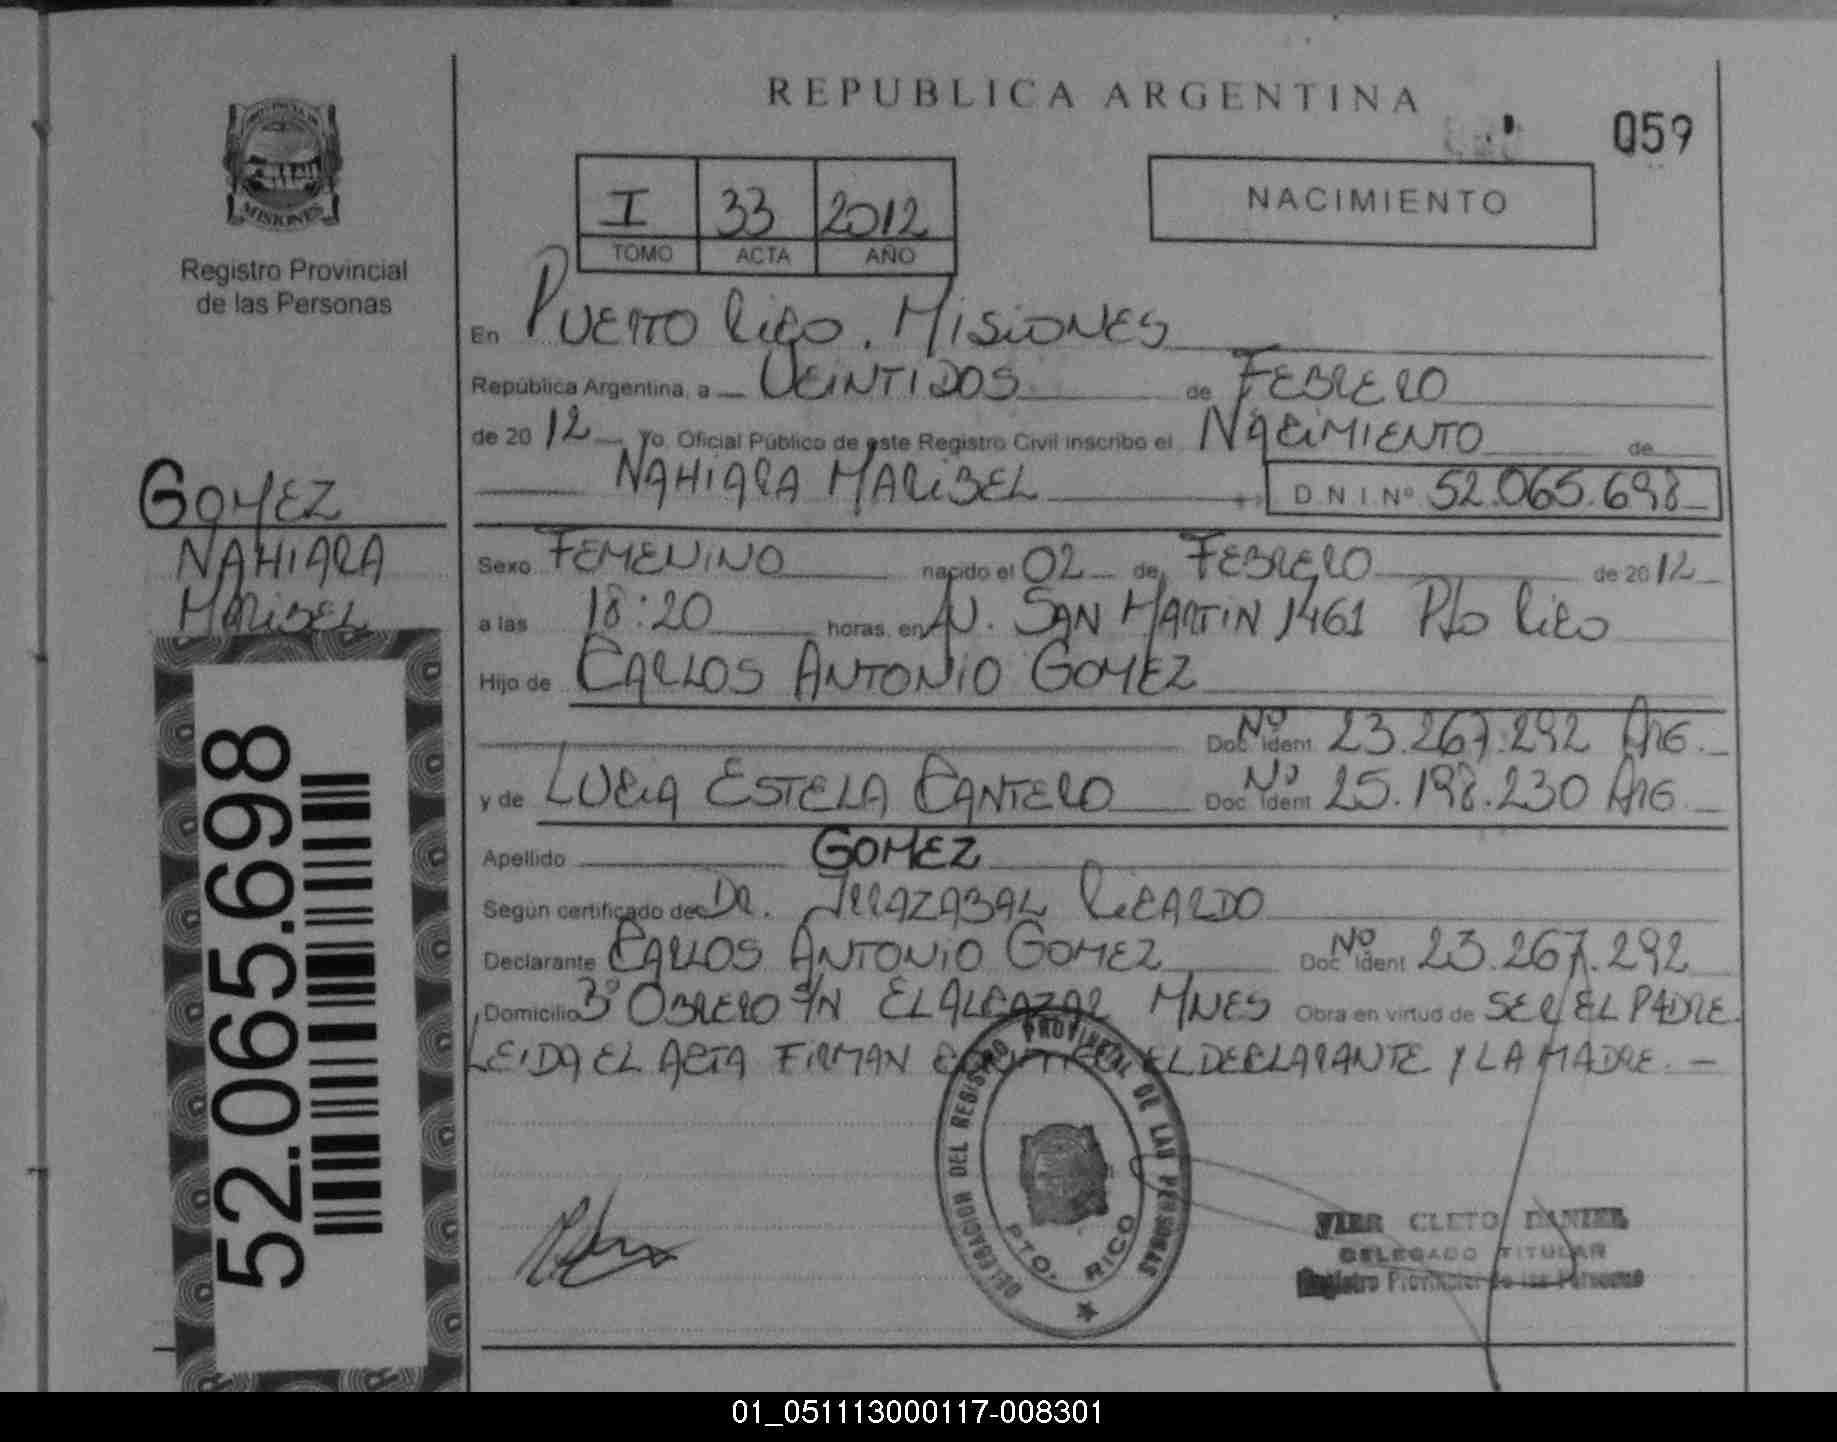 REPUBLICA ARGENTINA
059
MISIONES
Registro Provincial
de las Personas
I 33 2012
TOMO ACTA AÑO
NACIMIENTO
En PUERTO RICO. MISIONES
República Argentina, a VEINTIDOS de FEBRERO
de 2012 Yo, Oficial Público de este Registro Civil inscribo el NACIMIENTO de
NAHIARA MARIBEL D N I Nº 52.065.698
GOMEZ
NAHIARA
MARIBEL
Sexo FEMENINO nacido el 02 de FEBRERO de 2012
a las 18:20 horas, en AV. SAN MARTIN 1461 Pto RICO
Hijo de CARLOS ANTONIO GOMEZ
Doc Ident Nº 23.267.292 ARG.
y de LUCIA ESTELA CANTERO Doc Ident Nº 25.198.230 ARG
Apellido GOMEZ
Según certificado de DR. IRRAZABAL RICARDO
Declarante CARLOS ANTONIO GOMEZ Doc Ident Nº 23.267.292
Domicilio Bº OBRERO S/N EL ALCAZAR MNES Obra en virtud de SER EL PADRE
LEIDA EL ACTA FIRMAN EL DECLARANTE Y LA MADRE. -
52.065.698
DELEGACION DEL REGISTRO PROVINCIAL DE LAS PERSONAS
PTO. RICO
VIER CLETO DANIEL
DELEGADO TITULAR
Registro Provincial de las Personas
01_051113000117-008301